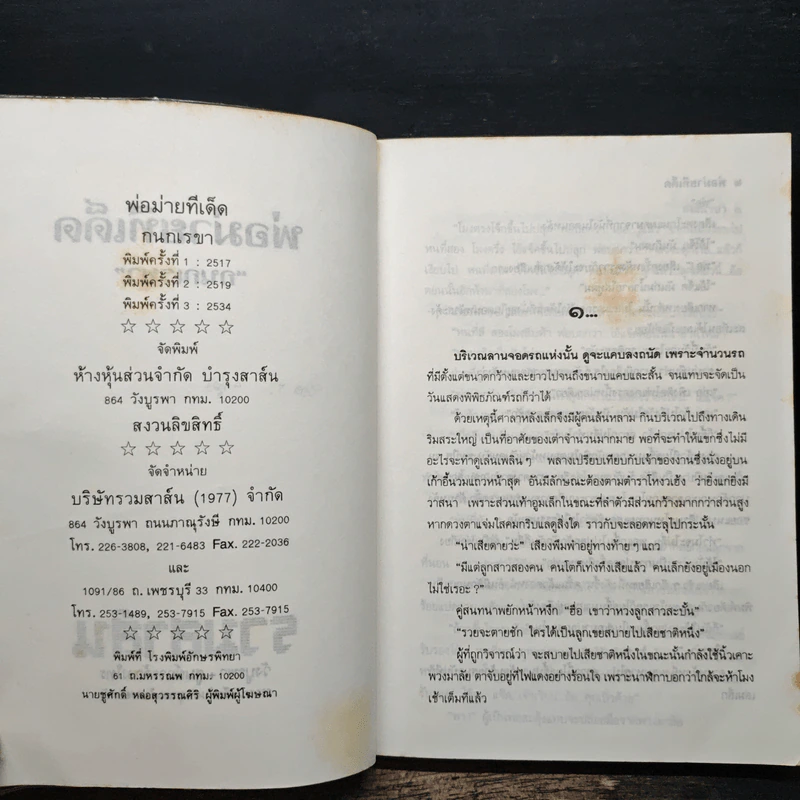 พ่อม่ายทีเด็ด
กนกเรขา
พิมพ์ครั้งที่ 1 : 2517
พิมพ์ครั้งที่ 2 : 2519
พิมพ์ครั้งที่ 3 : 2534
☆ ☆ ☆ ☆ ☆
จัดพิมพ์
ห้างหุ้นส่วนจำกัด บำรุงสาส์น
864 วังบูรพา กทม. 10200
สงวนลิขสิทธิ์
☆ ☆ ☆ ☆ ☆
จัดจำหน่าย
บริษัทรวมสาส์น (1977) จำกัด
864 วังบูรพา ถนนภาณุรังษี กทม. 10200
โทร. 226-3808, 221-6483 Fax. 222-2036
และ
1091/86 ถ.เพชรบุรี 33 กทม. 10400
โทร. 253-1489, 253-7915 Fax. 253-7915
☆ ☆ ☆ ☆ ☆
พิมพ์ที่ โรงพิมพ์อักษรพิทยา
61 ถ.มหรรณพ กทม. 10200
นายชูศักดิ์ หล่อสุวรรณศิริ ผู้พิมพ์ผู้โฆษณา
๑...
บริเวณลานจอดรถแห่งนั้น ดูจะแคบลงถนัด เพราะจำนวนรถ
ที่มีตั้งแต่ขนาดกว้างและยาวไปจนถึงขนาบแคบและสั้น จนแทบจะจัดเป็น
วันแสดงพิพิธภัณฑ์รถก็ว่าได้
ด้วยเหตุนี้ศาลาหลังเล็กจึงมีผู้คนล้นหลาม กินบริเวณไปถึงทางเดิน
ริมสระใหญ่ เป็นที่อาศัยของเต่าจำนวนมากมาย พอที่จะทำให้แขกซึ่งไม่มี
อะไรจะทำดูเล่นเพลิน ๆ พลางเปรียบเทียบกับเจ้าของงานซึ่งนั่งอยู่บน
เก้าอี้นวมแถวหน้าสุด อันมีลักษณะต้องตามตำราโหงวเฮ้ง ว่ายิ่งแก่ยิ่งมี
วาสนา เพราะส่วนเท้าอูมเล็กในขณะที่ลำตัวมีส่วนกว้างมากกว่าส่วนสูง
หากดวงตาแจ่มใสคมกริบแลดูสิ่งใด ราวกับจะลอดทะลุไปกระนั้น
“น่าเสียดายว่ะ” เสียงพึมพำอยู่ทางท้าย ๆ แถว
“มีแต่ลูกสาวสองคน คนโตก็เท่งทึงเสียแล้ว คนเล็กยังอยู่เมืองนอก
ไม่ใช่เรอะ ?”
คู่สนทนาพยักหน้าหงึก “ฮื่อ เขาว่าหวงลูกสาวสะบั้น”
“รวยจะตายชัก ใครได้เป็นลูกเขยสบายไปเสียชาติหนึ่ง”
ผู้ที่ถูกวิจารณ์ว่า จะสบายไปเสียชาติหนึ่งในขณะนั้นกำลังใช้นิ้วเคาะ
พวงมาลัย ตาจับอยู่ที่ไฟแดงอย่างร้อนใจ เพราะนาฬิกาบอกว่าใกล้จะห้าโมง
เข้าเต็มทีแล้ว